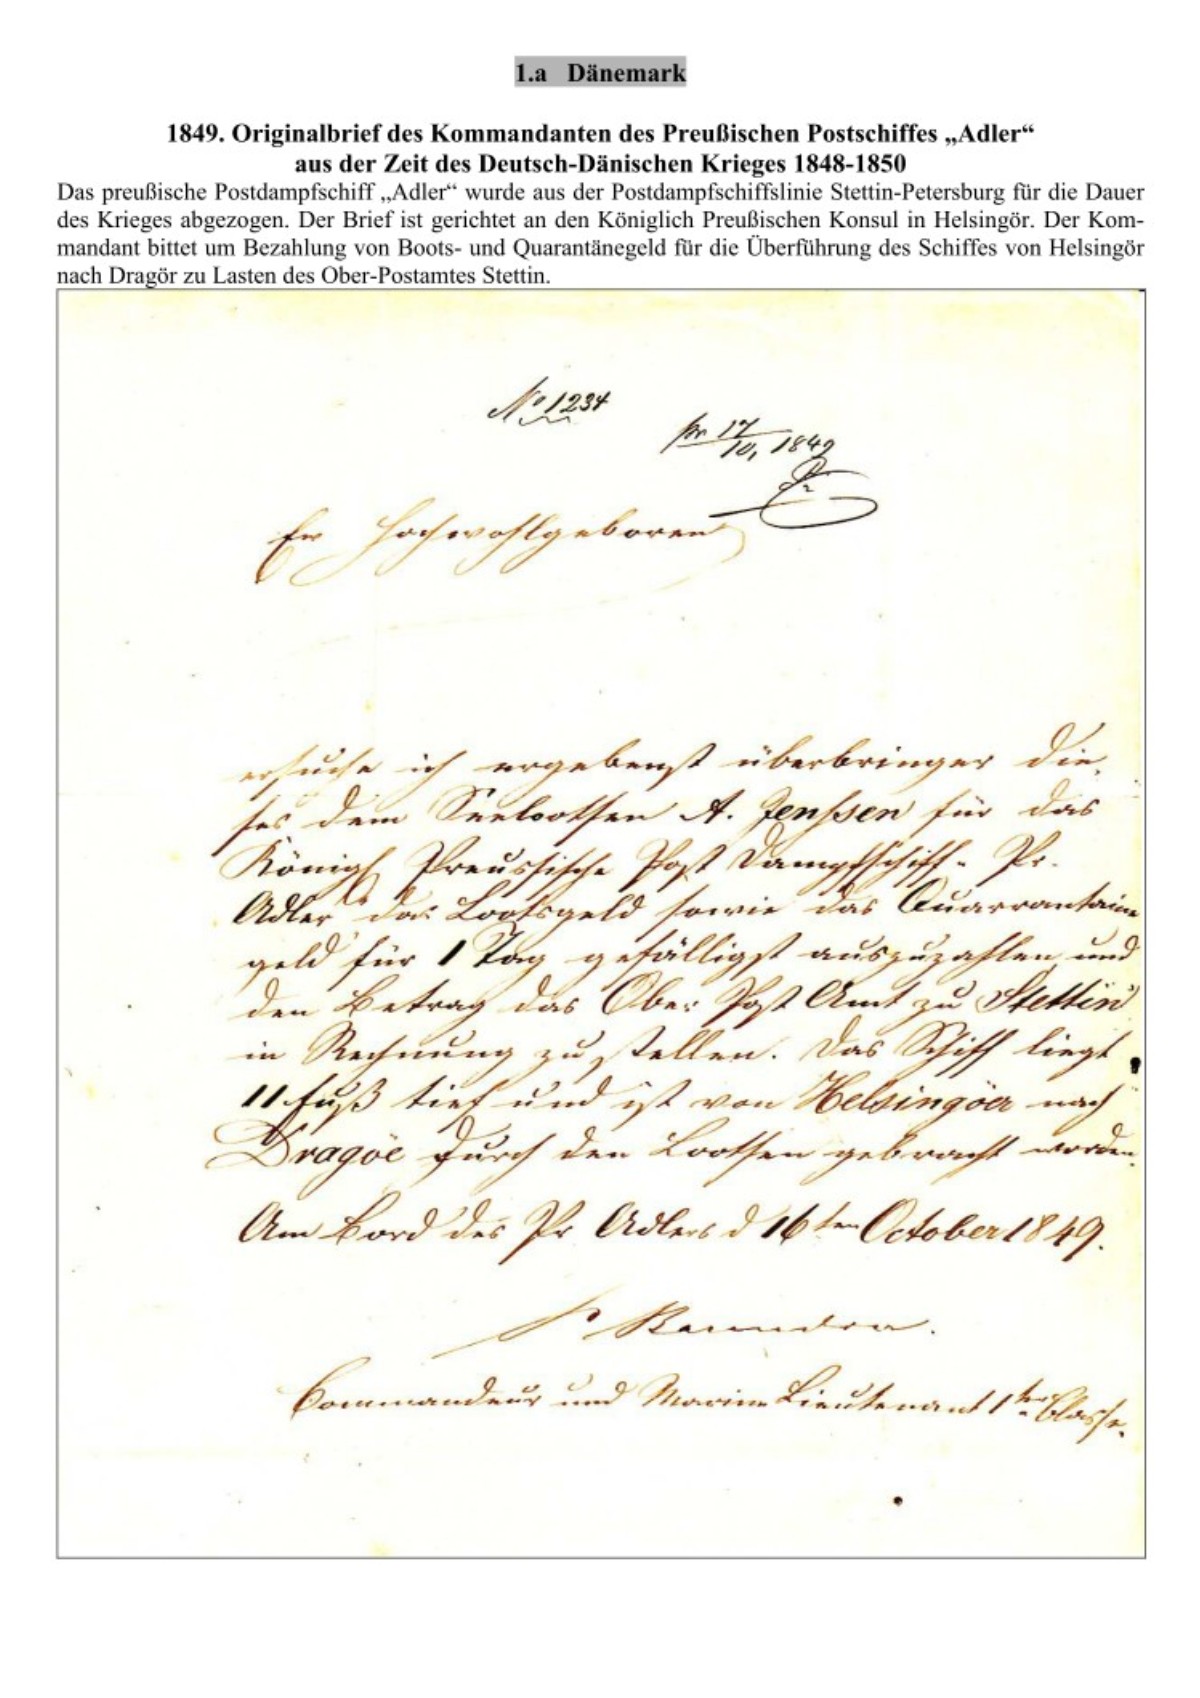 1.a Dänemark
1849. Originalbrief des Kommandanten des Preußischen Postschiffes „Adler“
aus der Zeit des Deutsch-Dänischen Krieges 1848-1850
Das preußische Postdampfschiff „Adler“ wurde aus der Postdampfschiffslinie Stettin-Petersburg für die Dauer
des Krieges abgezogen. Der Brief ist gerichtet an den Königlich Preußischen Konsul in Helsingör. Der Kom-
mandant bittet um Bezahlung von Boots- und Quarantänegeld für die Überführung des Schiffes von Helsingör
nach Dragör zu Lasten des Ober-Postamtes Stettin.
No 1234
pr 17/10, 1849
Ew Hochwohlgeboren
ersuche ich ergebenst überbringer die
ses dem Seelootsen A. Jenssen für das
Königl Preussische Post Dampfschiff Pr.
Adler das Lootsgeld sowie das Quarrantaine
geld für 1 Tag gefälligst auszuzahlen und
den Betrag das Ober Post Amt zu Stettin
in Rechnung zu stellen. Das Schiff liegt
11 Fuß tief und ist von Helsingöer nach
Dragöe durch den Lootsen gebracht worden.
Am Bord des Pr Adlers d 16ten October 1849.
Commandeur und Marine Lieutenant 1ter Classe.